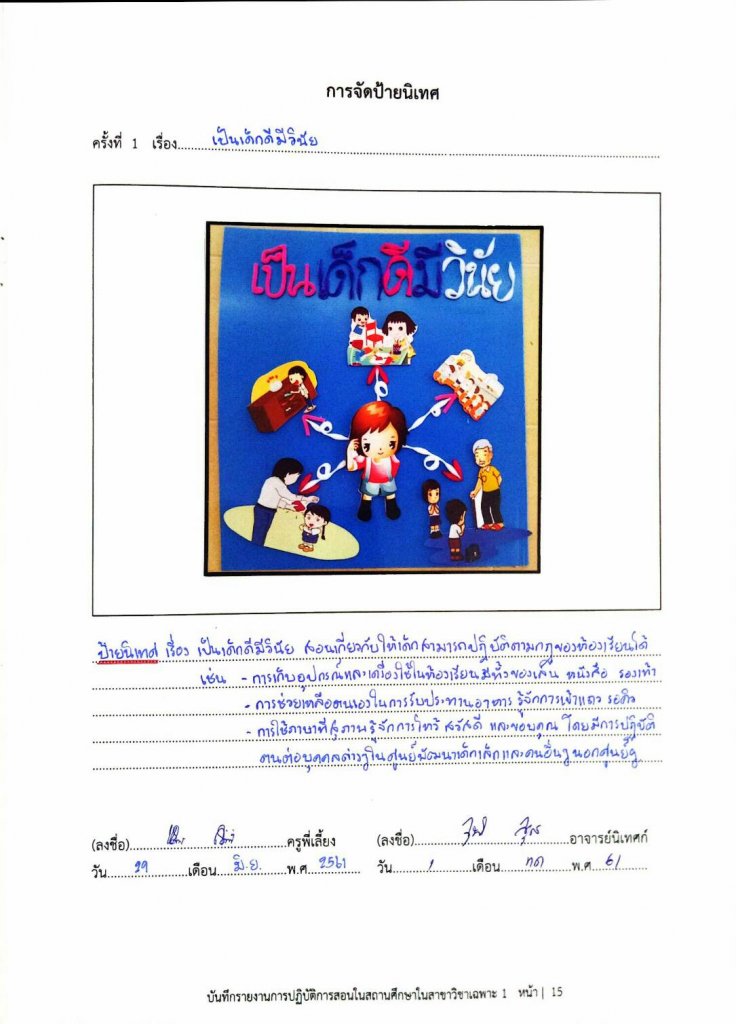 การจัดป้ายนิเทศ
ครั้งที่ 1 เรื่อง เป็นเด็กดีมีวินัย
เป็นเด็กดีมีวินัย
ป้ายนิเทศ เรื่อง เป็นเด็กดีมีวินัย สอนเกี่ยวกับให้เด็กสามารถปฏิบัติตามกฎของห้องเรียนได้
เช่น - การเก็บอุปกรณ์และเครื่องใช้ในห้องเรียน มีทั้งของเล่น หนังสือ รองเท้า
- การช่วยเหลือตนเองในการรับประทานอาหาร รู้จักการเข้าแถว รอคิว
- การใช้ภาษาที่สุภาพ รู้จักการไหว้ สวัสดี และขอบคุณ โดยมีการปฏิบัติ
ตนต่อบุคคลต่างๆในศูนย์พัฒนาเด็กเล็กและคนอื่นๆนอกศูนย์ฯ
(ลงชื่อ) ครูพี่เลี้ยง (ลงชื่อ) อาจารย์นิเทศก์
วัน 29 เดือน มิ.ย. พ.ศ. 2561 วัน 1 เดือน กค พ.ศ. 61
บันทึกรายงานการปฏิบัติการสอนในสถานศึกษาในสาขาวิชาเฉพาะ 1 หน้า | 15